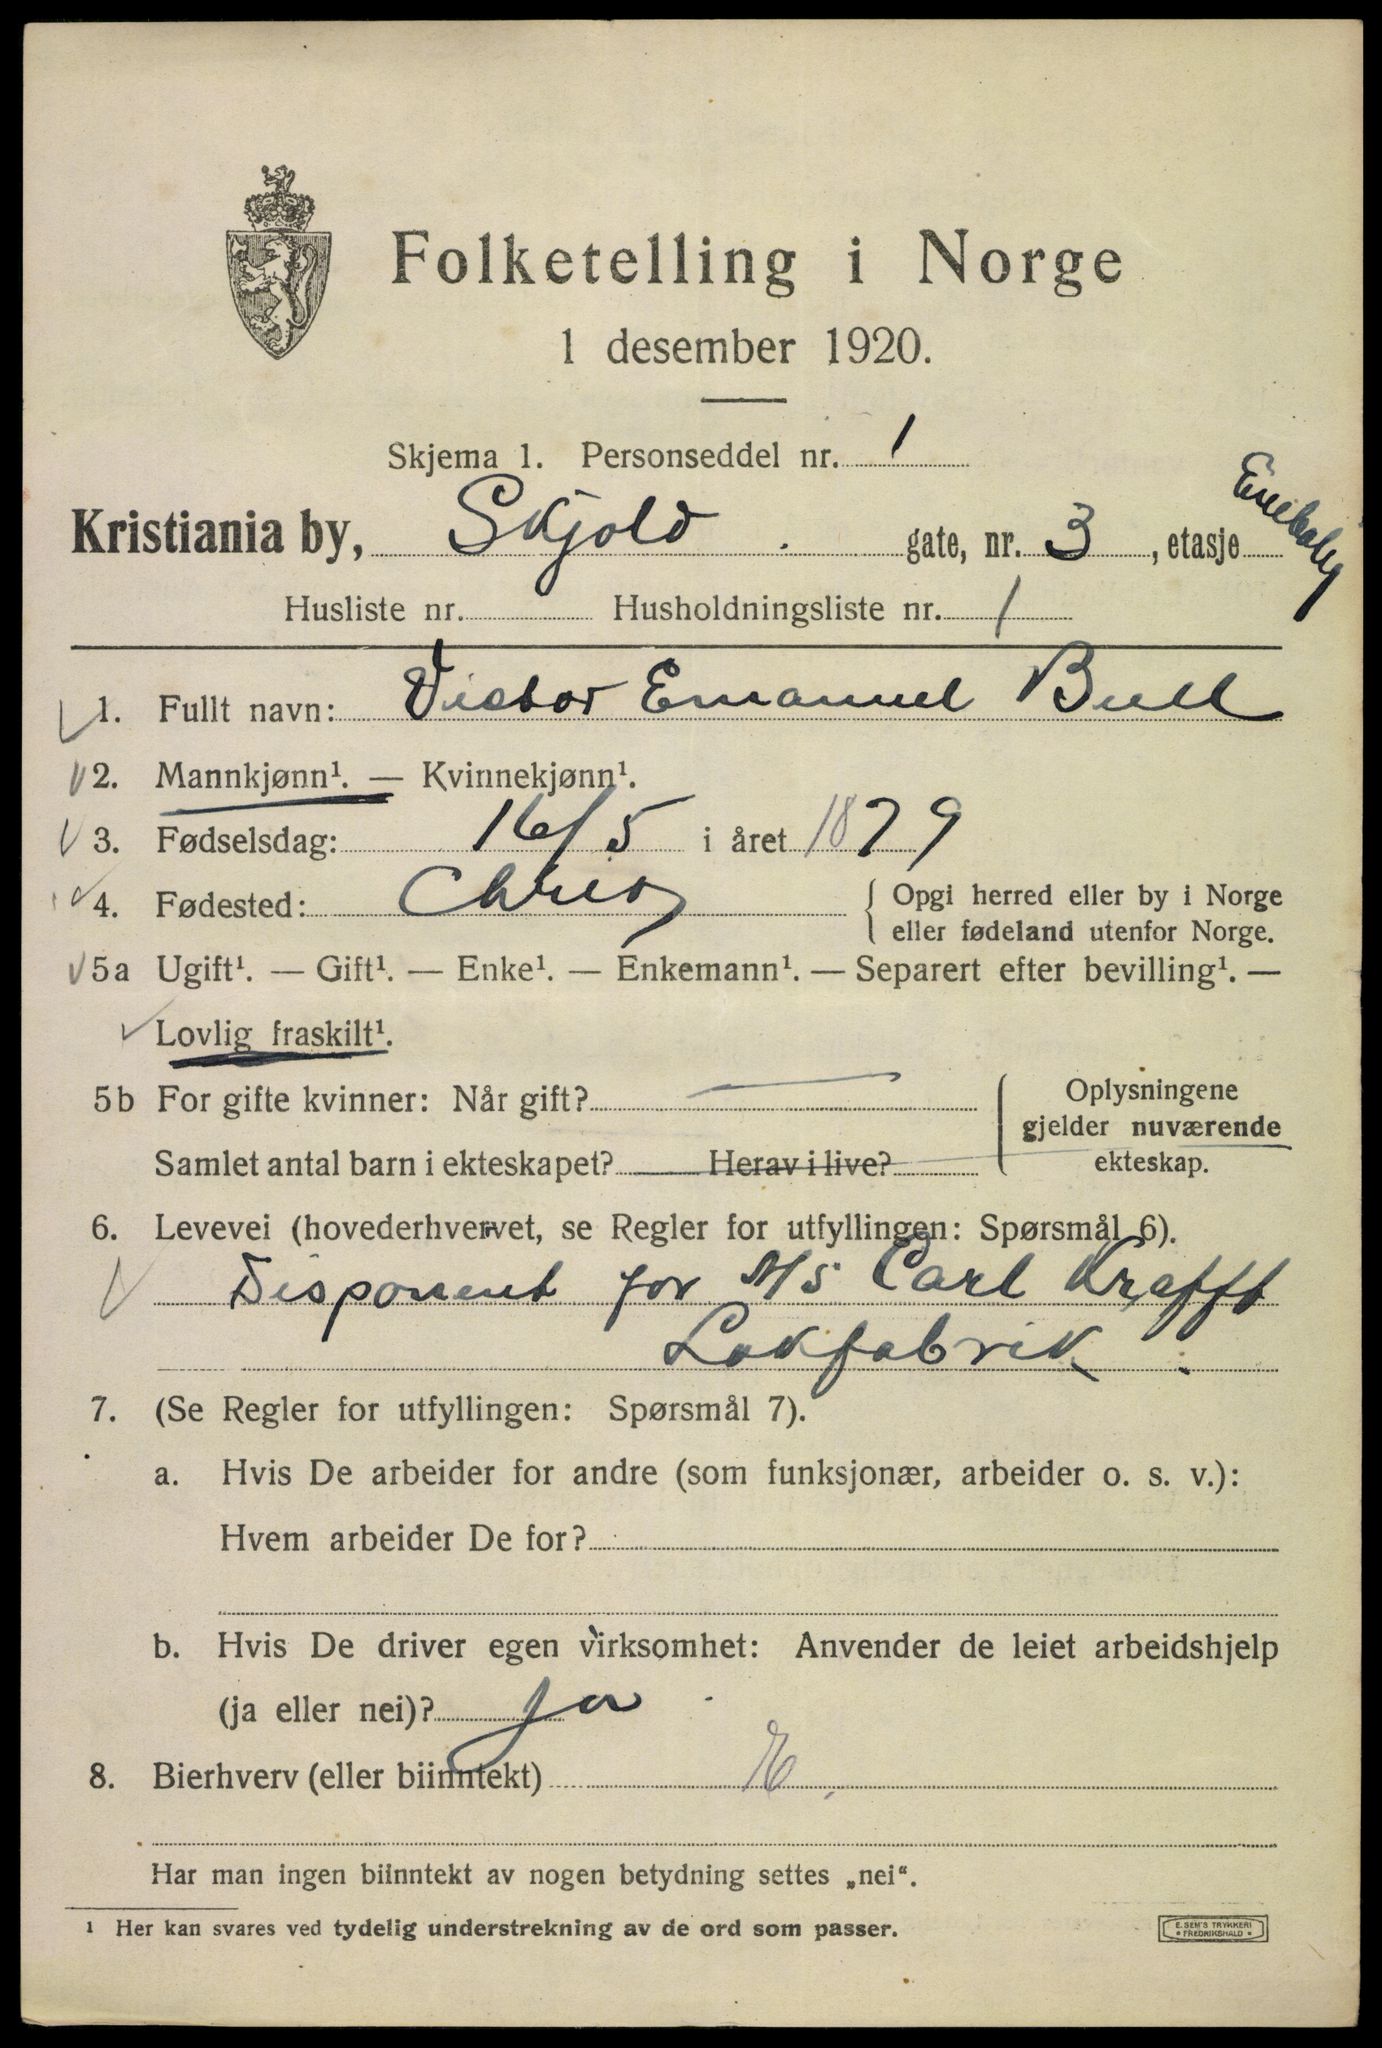 Folketelling i Norge
1 desember 1920.
Skjema 1. Personseddel nr. 1
Kristiania by, Skjold gate, nr. 3, etasje Enebolig
Husliste nr. Husholdningsliste nr. 1
1. Fullt navn: Victor Emanuel Bull
2. Mannkjønn¹. — Kvinnekjønn¹.
3. Fødselsdag: 16/5 i året 1879
4. Fødested: Chria { Opgi herred eller by i Norge
eller fødeland utenfor Norge.
5a Ugift¹. — Gift¹. — Enke¹. — Enkemann¹. — Separert efter bevilling¹. —
Lovlig fraskilt¹.
5b For gifte kvinner: Når gift? { Oplysningene
gjelder nuværende
Samlet antal barn i ekteskapet? Herav i live? ekteskap.
6. Levevei (hovederhvervet, se Regler for utfyllingen: Spørsmål 6).
Disponent for A/S Carl Krafft
Lakfabrik
7. (Se Regler for utfyllingen: Spørsmål 7).
a. Hvis De arbeider for andre (som funksjonær, arbeider o. s. v.):
Hvem arbeider De for?
b. Hvis De driver egen virksomhet: Anvender de leiet arbeidshjelp
(ja eller nei)? Ja
8. Bierhverv (eller biinntekt)
Har man ingen biinntekt av nogen betydning settes „nei“.
¹ Her kan svares ved tydelig understrekning av de ord som passer.
E. SEM'S TRYKKERI
* FREDRIKSHALD *